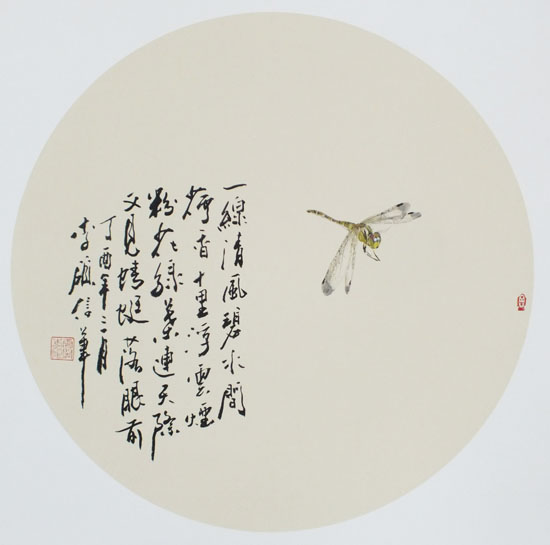 一線清風碧水間
荷香十里浮雲煙
粉花綠葉連天際
又見蜻蜓落眼前
丁酉年二月
信筆